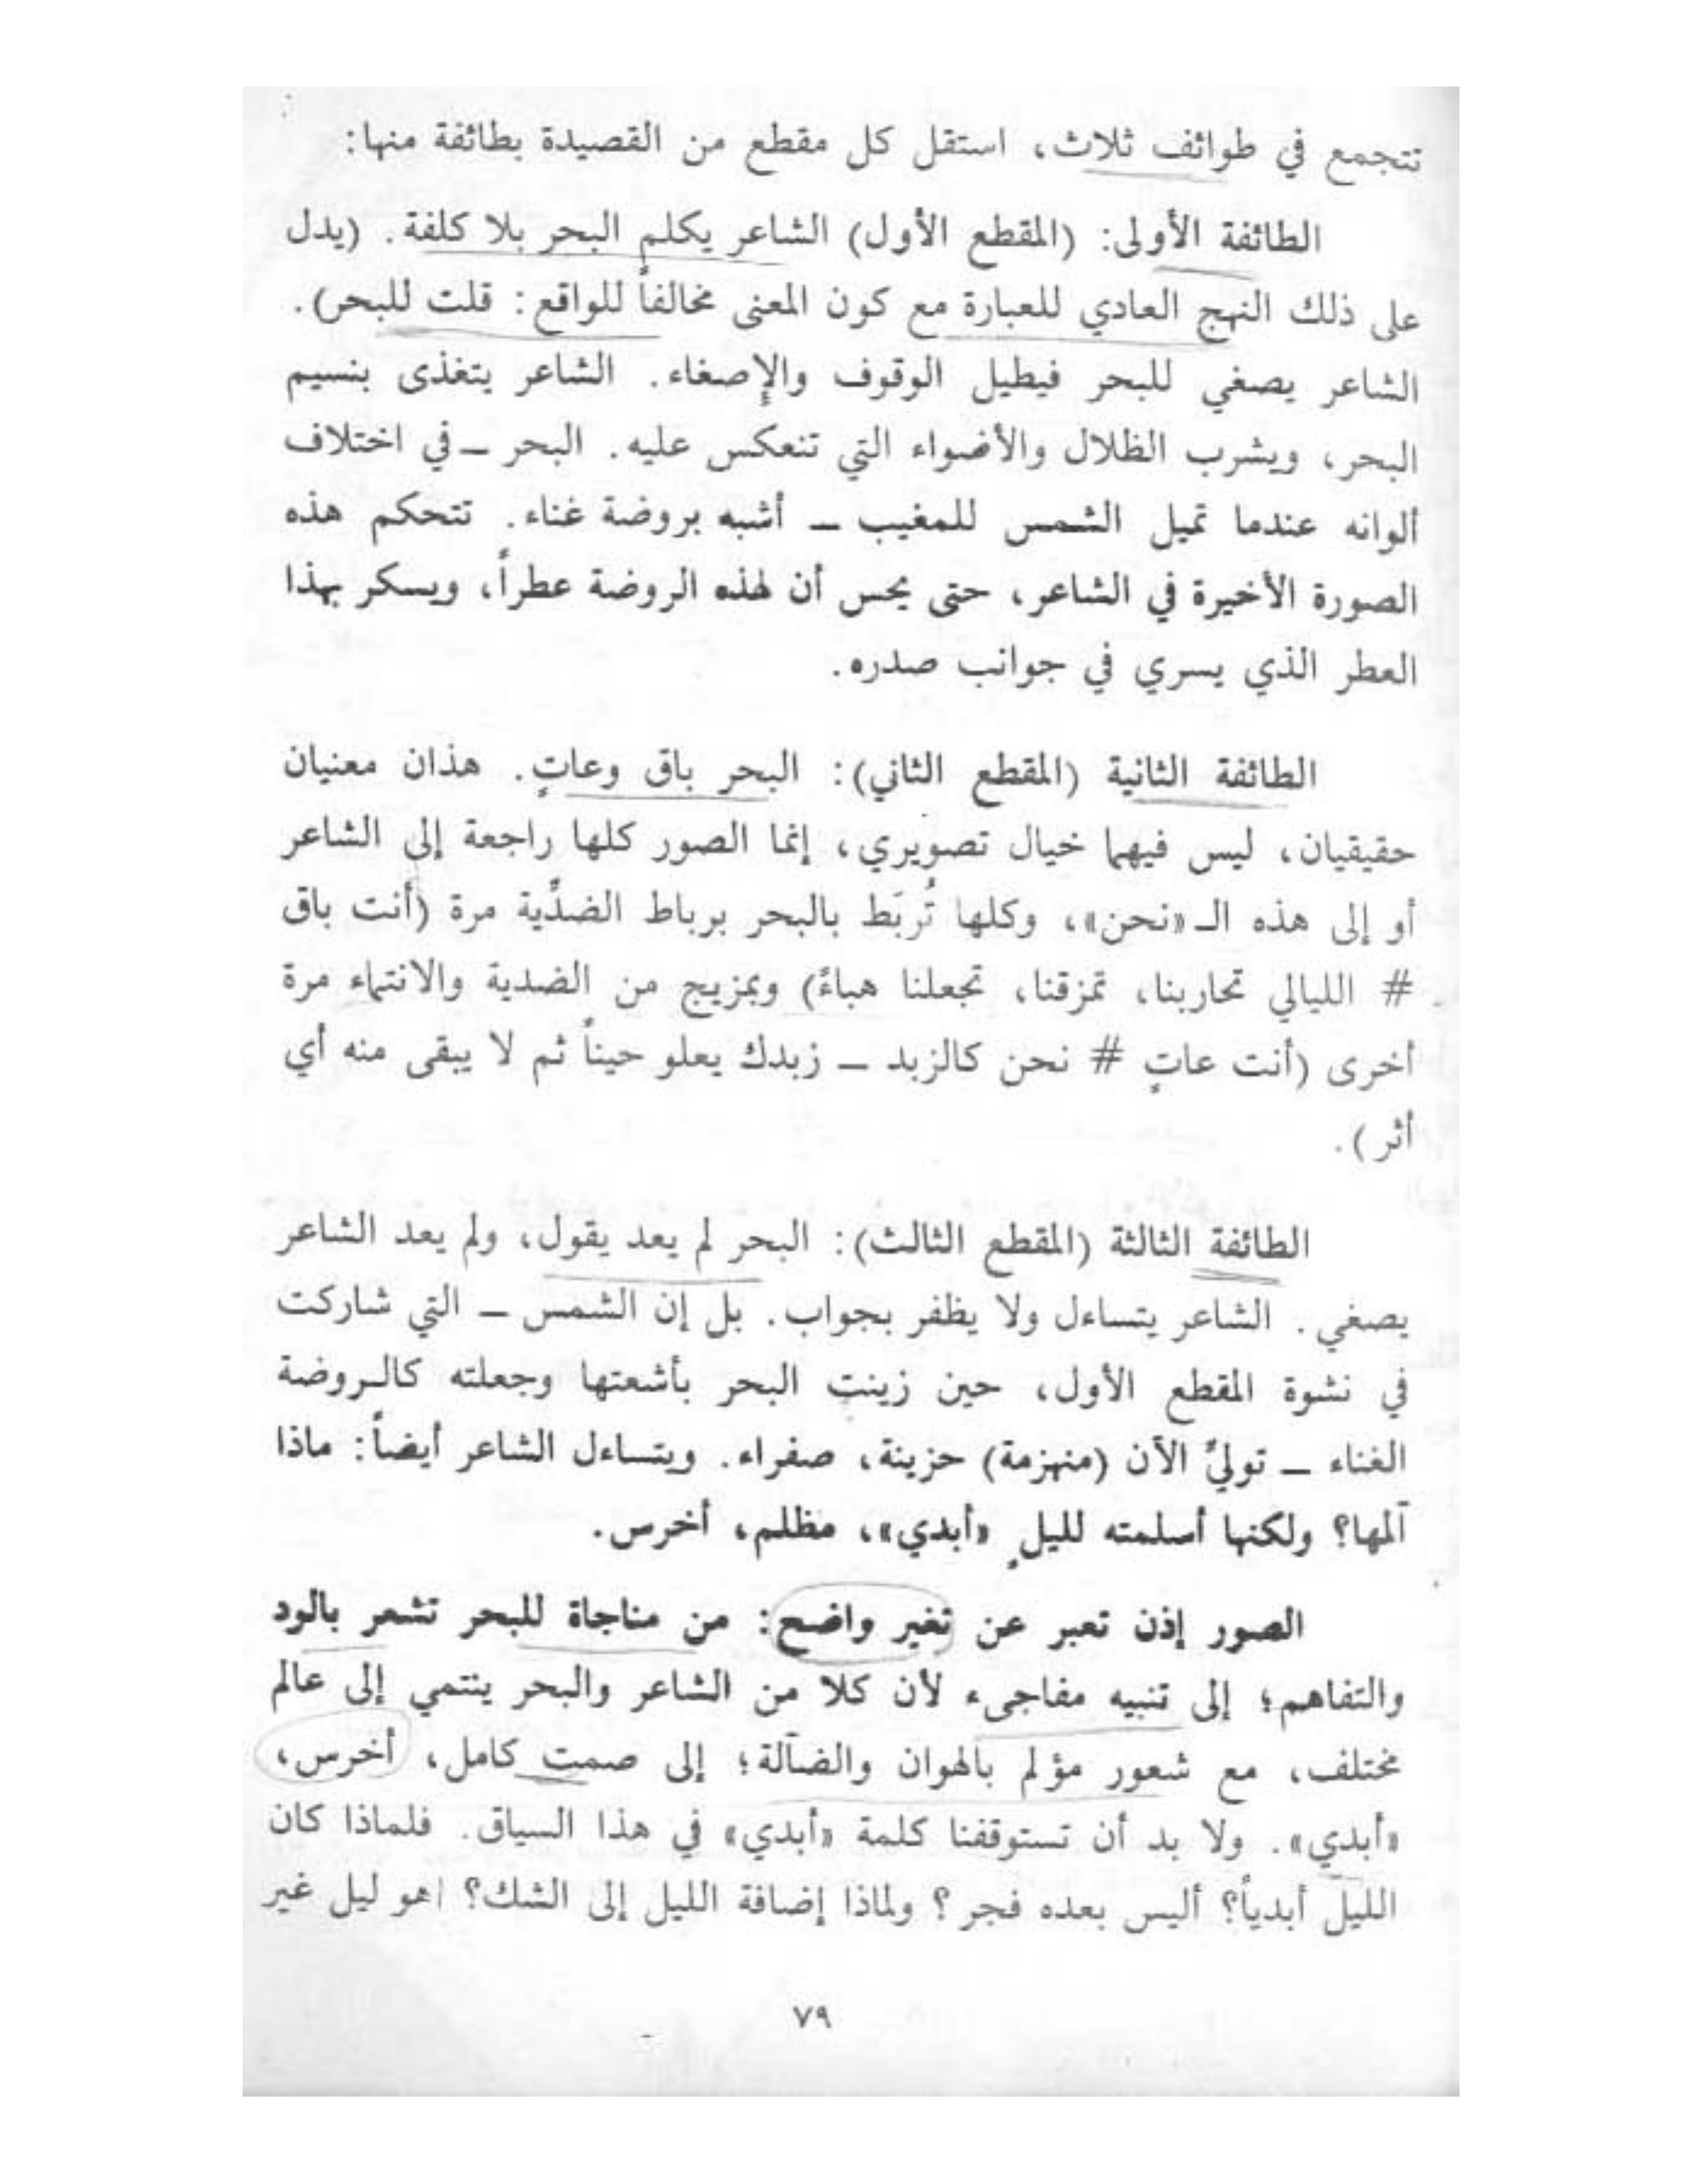 تتجمع في طوائف ثلاث، استقل كل مقطع من القصيدة بطائفة منها:
الطائفة الأولى: (المقطع الأول) الشاعر يكلم البحر بلا كلفة. (يدل
على ذلك النهج العادي للعبارة مع كون المعنى مخالفاً للواقع: قلت للبحر).
الشاعر يصغي للبحر فيطيل الوقوف والإصغاء. الشاعر يتغذى بنسيم
البحر، ويشرب الظلال والأضواء التي تنعكس عليه. البحر ــ في اختلاف
ألوانه عندما تميل الشمس للمغيب ــ أشبه بروضة غناء. تتحكم هذه
الصورة الأخيرة في الشاعر، حتى يحس أن لهذه الروضة عطراً، ويسكر بهذا
العطر الذي يسري في جوانب صدره.
الطائفة الثانية (المقطع الثاني): البحر باق وعاتٍ. هذان معنيان
حقيقيان، ليس فيهما خيال تصويري، إنما الصور كلها راجعة إلى الشاعر
أو إلى هذه الـ «نحن»، وكلها تُربَط بالبحر برباط الضدِّية مرة (أنت باق
# الليالي تحاربنا، تمزقنا، تجعلنا هباءً) وبمزيج من الضدية والانتماء مرة
أخرى (أنت عاتٍ # نحن كالزبد ــ زبدك يعلو حيناً ثم لا يبقى منه أي
أثر).
الطائفة الثالثة (المقطع الثالث): البحر لم يعد يقول، ولم يعد الشاعر
يصغي. الشاعر يتساءل ولا يظفر بجواب. بل إن الشمس ــ التي شاركت
في نشوة المقطع الأول، حين زينت البحر بأشعتها وجعلته كالروضة
الغناء ــ تولي الآن (منهزمة) حزينة، صفراء. ويتساءل الشاعر أيضاً: ماذا
آلمها؟ ولكنها أسلمته لليلٍ «أبدي»، مظلم، أخرس.
الصور إذن تعبر عن تغير واضح: من مناجاة للبحر تشعر بالود
والتفاهم؛ إلى تنبيه مفاجىء لأن كلا من الشاعر والبحر ينتمي إلى عالم
مختلف، مع شعور مؤلم بالهوان والضآلة؛ إلى صمت كامل، أخرس،
«أبدي». ولا بد أن تستوقفنا كلمة «أبدي» في هذا السياق. فلماذا كان
الليل أبدياً؟ أليس بعده فجر؟ ولماذا إضافة الليل إلى الشك؟ أهو ليل غير
٧٩